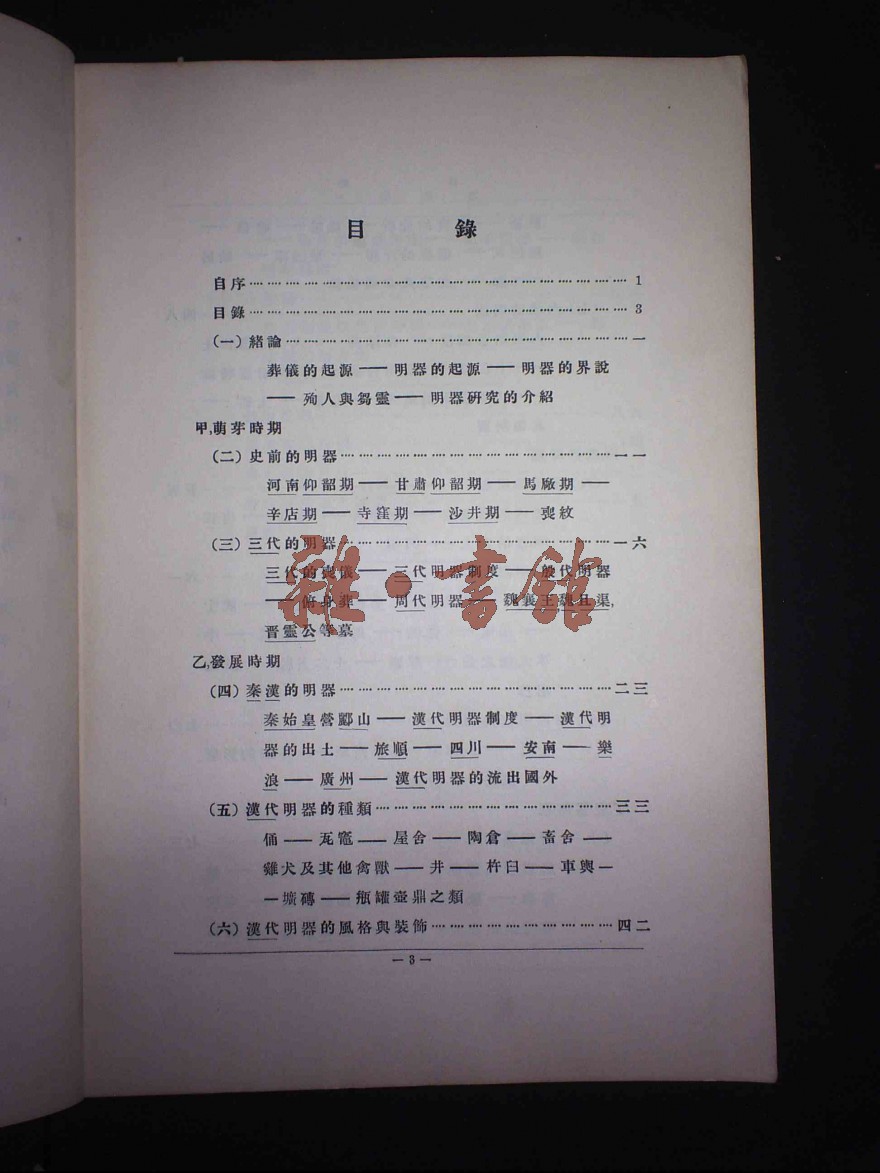 目錄
自序………………………………………………1
目錄………………………………………………3
(一)緒論……………………………………………一
葬儀的起源——明器的起源——明器的界說
——殉人與芻靈——明器硏究的介紹
甲,萌芽時期
(二)史前的明器……………………………………一一
河南仰韶期——甘肅仰韶期——馬廠期——
辛店期——寺窪期——沙井期——喪紋
(三)三代的明器……………………………………一六
三代的喪儀——三代明器制度——殷代明器
——俯身葬——周代明器——魏襄王魏且渠,
晋靈公等墓
乙,發展時期
(四)秦漢的明器……………………………………二三
秦始皇營酈山——漢代明器制度——漢代明
器的出土——旅順——四川——安南——樂
浪——廣州——漢代明器的流出國外
(五)漢代明器的種類………………………………三三
俑——瓦竈——屋舍——陶倉——畜舍——
雞犬及其他禽獸——井——杵臼——車輿—
—壙磚——瓶罐壺鼎之類
(六)漢代明器的風格與裝飾………………………四二
—3—
雜·書館